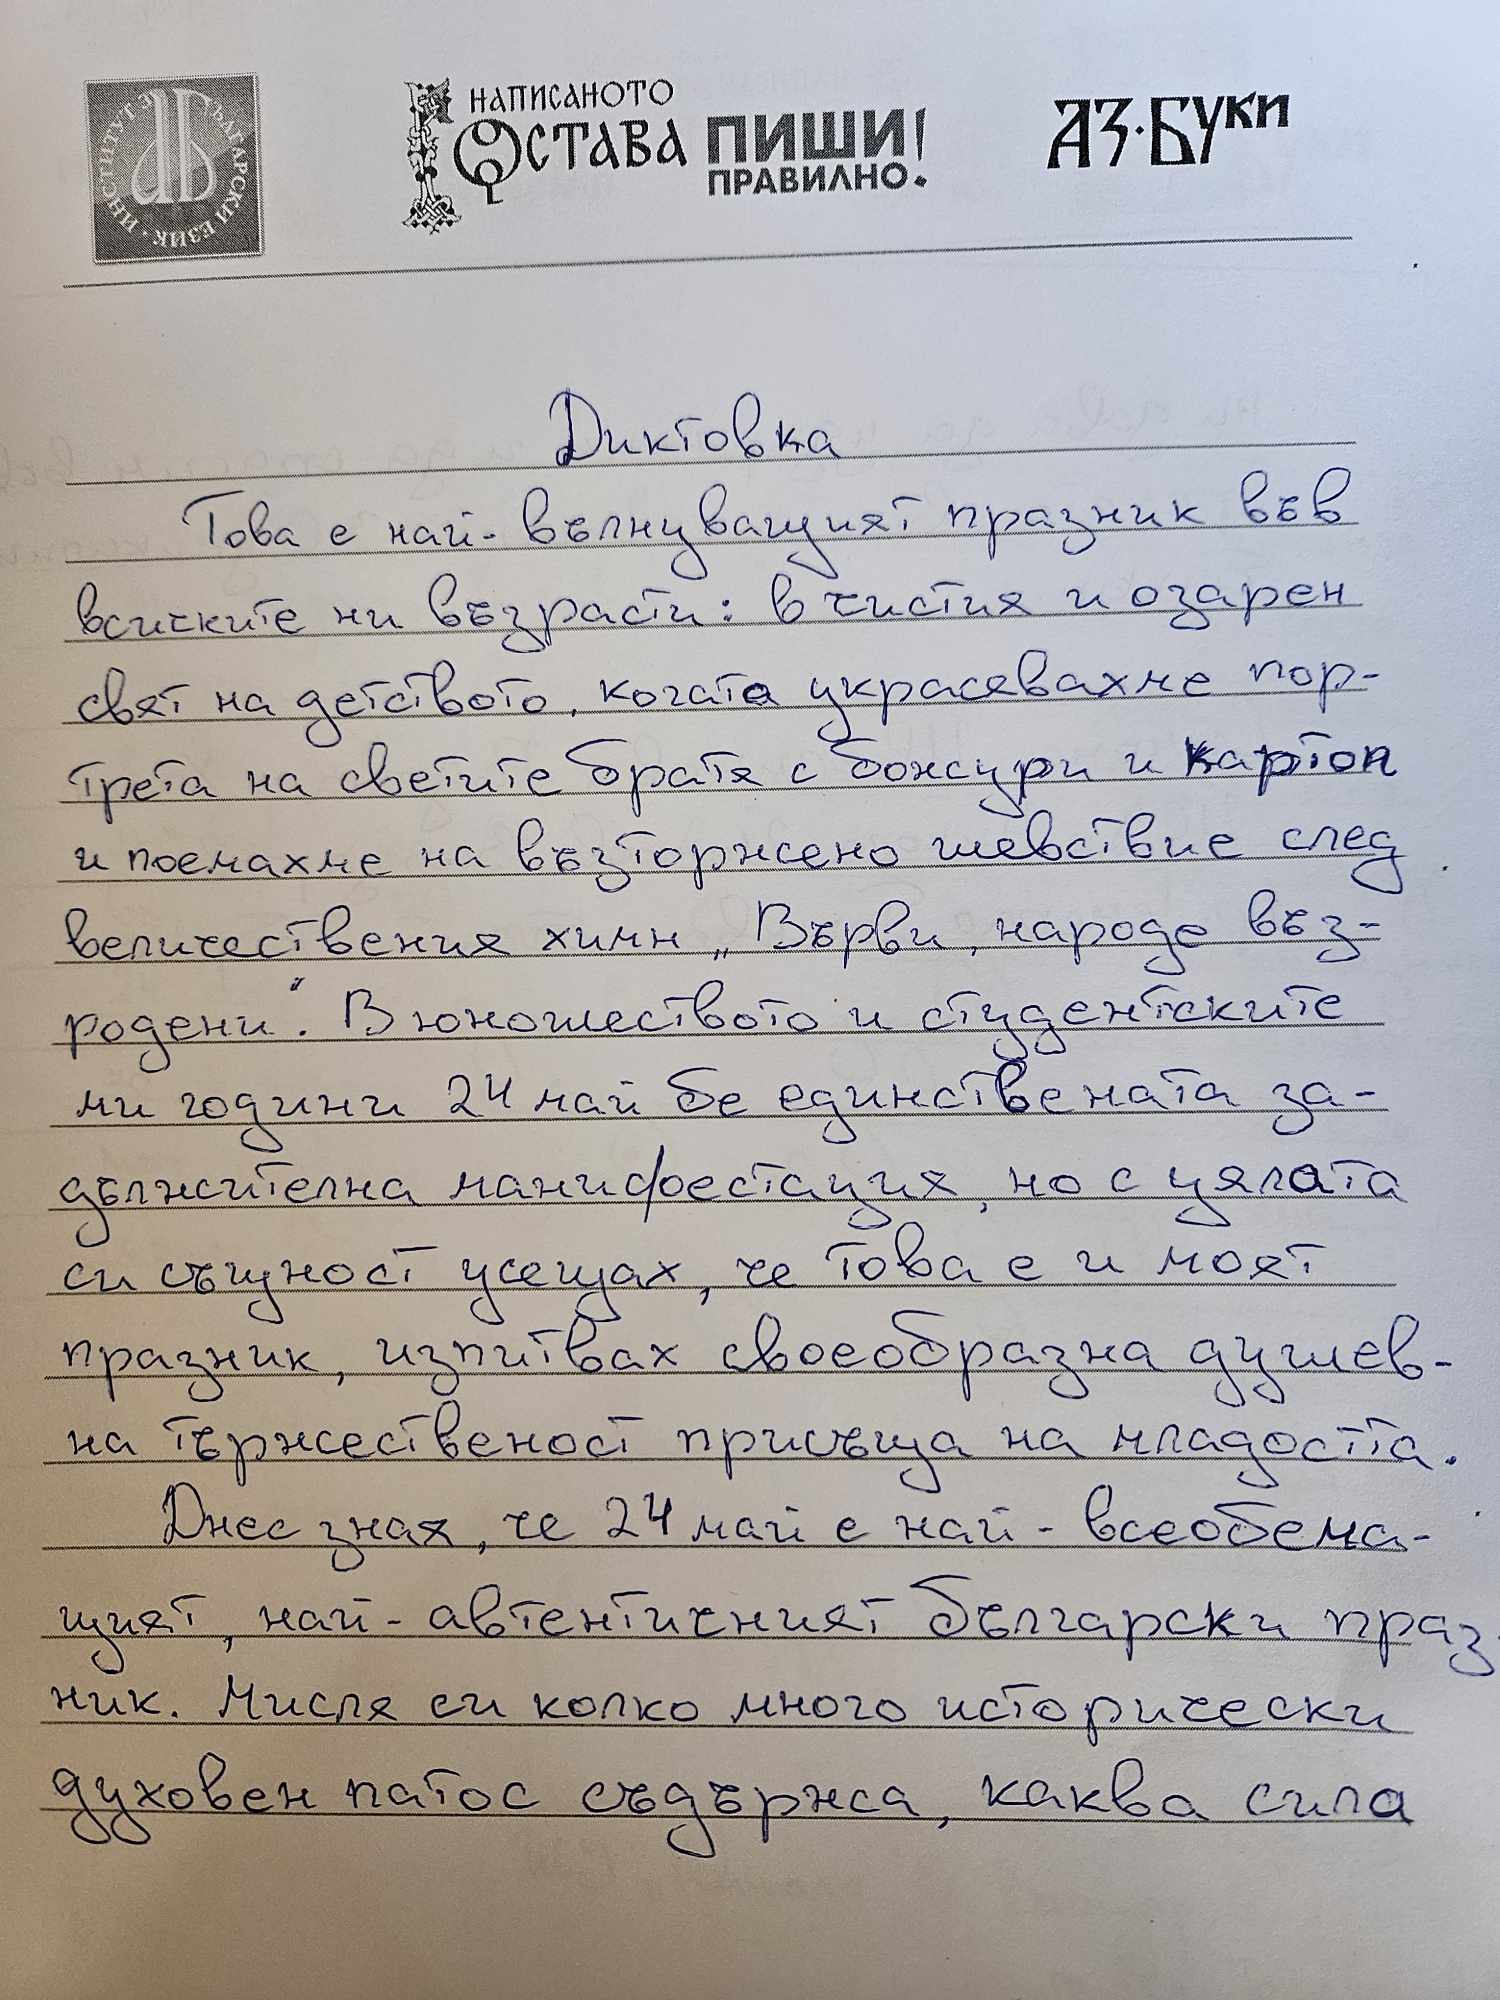 ИНСТИТУТ ЗА БЪЛГАРСКИ ЕЗИК
НАПИСАНОТО
ОСТАВА ПИШИ
ПРАВИЛНО!
АЗ·БУКИ
Диктовка
Това е най-вълнуващият празник във
всичките ни възрасти: в чистия и озарен
свят на детството, когато украсявахме пор-
трета на светите братя с божури и картон
и поемахме на възторжено шевствие след
величествения химн „Върви, народе въз-
родени“. В юношеството и студентските
ми години 24 май бе единствената за-
дължителна манифестация, но с цялата
си същност усещах, че това е и моят
празник, изпитвах своеобразна душев-
на тържественост присъща на младостта.
Днес зная, че 24 май е най-всеобема-
щият, най-автентичният български праз-
ник. Мисля си колко много исторически
духовен патос съдържа, каква сила